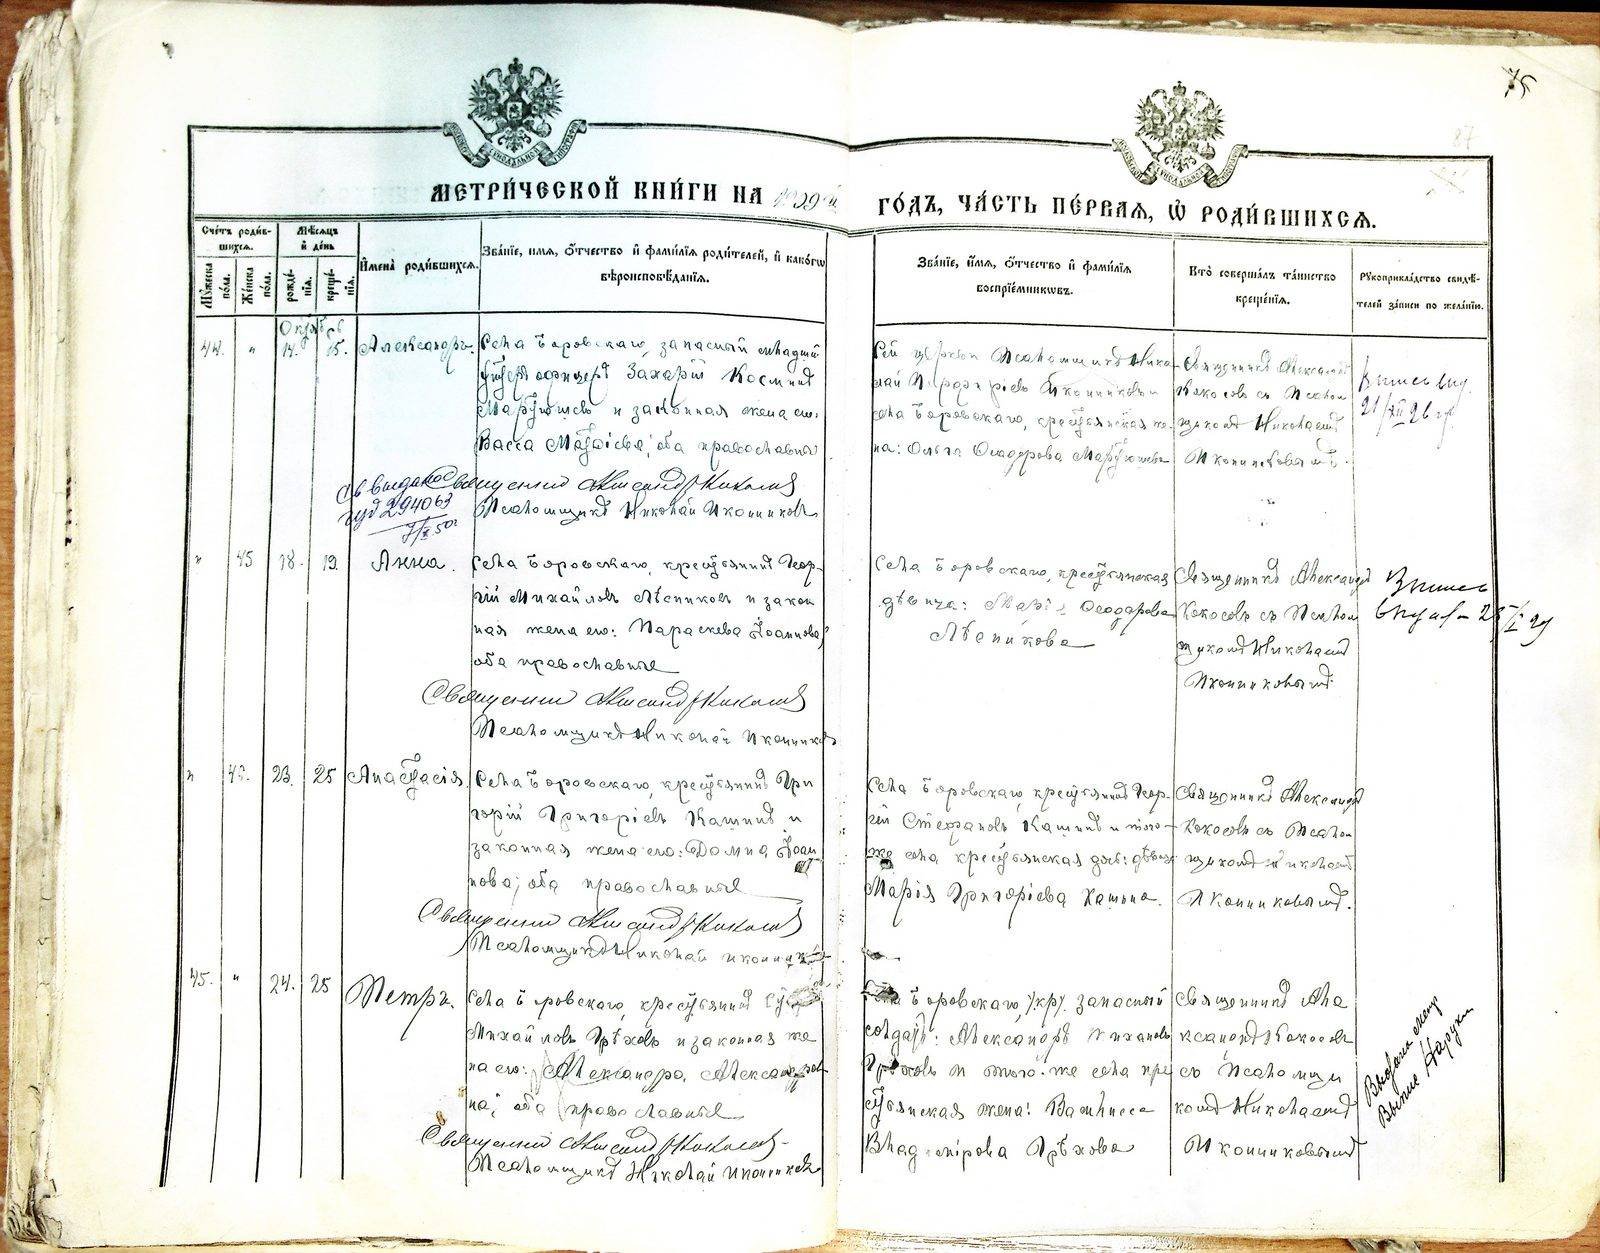 75
87
МЕТРИ́ЧЕСКОЙ КНИ́ГИ НА 1909й ГО́ДЪ, ЧА́СТЬ ПЕ́РВАЯ, Ѽ РОДИ́ВШИХСѦ.
Сче́тъ роди́в-
шихся.
Мѣ́сяцъ
и҆ де́нь
Му́жеска
по́ла.
Же́нска
по́ла.
рожде́-
нія.
креще́-
нія.
И҆мена̀ роди́вшихся.
Зва́ніе, и҆́мя, ѻ҆́тчество и҆ фами́лія роди́телей, и҆ како́гѡ
вѣроисповѣ́данія.
Зва́ніе, и҆́мя, ѻ҆́тчество и҆ фами́лія
воспріе́мникѡвъ.
Кто̀ соверша́лъ та́инство
креще́нія.
Рукоприкла́дство свидѣ́-
телей за́писи по жела́нію.
Октябрь
44. " 14. 15. Александръ.
Села Боровскаго, запасный младшій
унтеръ офицеръ Захарій Косминъ
Марутяевъ и законная жена его:
Васса Матѳіева; оба православные
Священникъ Александръ Кокосовъ
Псаломщикъ Николай Иконниковъ
294063
Сей церкви Псаломщикъ Нико-
лай Порфиріевъ Иконниковъ и
села Боровскаго, крестьянская же-
на: Ольга Ѳеодорова
Священникъ Александръ
Кокосовъ съ Псалом
щикомъ Николаемъ
Иконниковымъ.
21/XII 26 г.
" 45 18. 19. Анна.
Села Боровскаго, крестьянинъ Геор-
гій Михайловъ Лѣсниковъ и закон
ная жена его: Параскева Іоаннова;
оба православные
Священникъ Александръ Кокосовъ
Псаломщикъ Николай Иконниковъ
Села Боровскаго, крестьянская
дѣвица: Марія Ѳеодорова
Лѣсникова
Священникъ Александръ
Кокосовъ съ Псалом
щикомъ Николаемъ
Иконниковымъ.
Выпись
" 23. 25 Анастасія.
Села Боровскаго, крестьянинъ Гри
горій Григоріевъ Кашинъ и
законная жена его: Домна Іоан
нова; оба православные
Священникъ Александръ Кокосовъ
Псаломщикъ Николай Иконниковъ
Села Боровскаго, крестьянинъ Геор-
гій Стефановъ Кашинъ и того-
же села крестьянская дѣвица
Марія Григоріева Кашина.
Священникъ Александръ
Кокосовъ съ Псалом
щикомъ Николаемъ
Иконниковымъ.
45. " 24. 25 Петръ.
Села Боровскаго, крестьянинъ
Михайловъ Грѣховъ и законная же
на его: Александра Александро
на; оба православные
Священникъ Александръ Кокосовъ
Псаломщикъ Николай Иконниковъ
Села Боровскаго, /кр/ запасный
солдатъ: Александръ Михайловъ
Грѣховъ и того-же села кре
стьянская жена: Васили́сса
Владимірова Грѣхова
Священникъ Але
ксандръ Кокосовъ
съ Псаломщи
комъ Николаемъ
Иконниковымъ